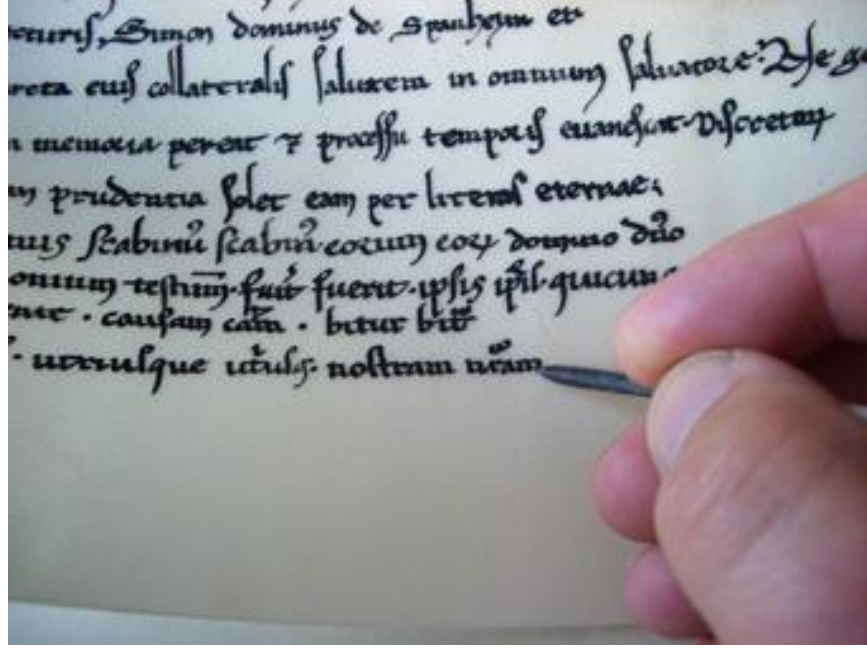 Simon dominus de Spanheym et
eius collateralis salutem in omnium salvatore. Ne
memoria pereat ⁊ processu temporis evanescat. Discretorum
prudentia solet eam per literas eternare;
scabinu᷒ scabin᷒ eorum eoꝝ domino dn̄o
omnium testium fuit fuerit. ipsis ip̄is. quicunq
causam cām. bitur bit᷒
utriusque utriusq. nostram nr̄am